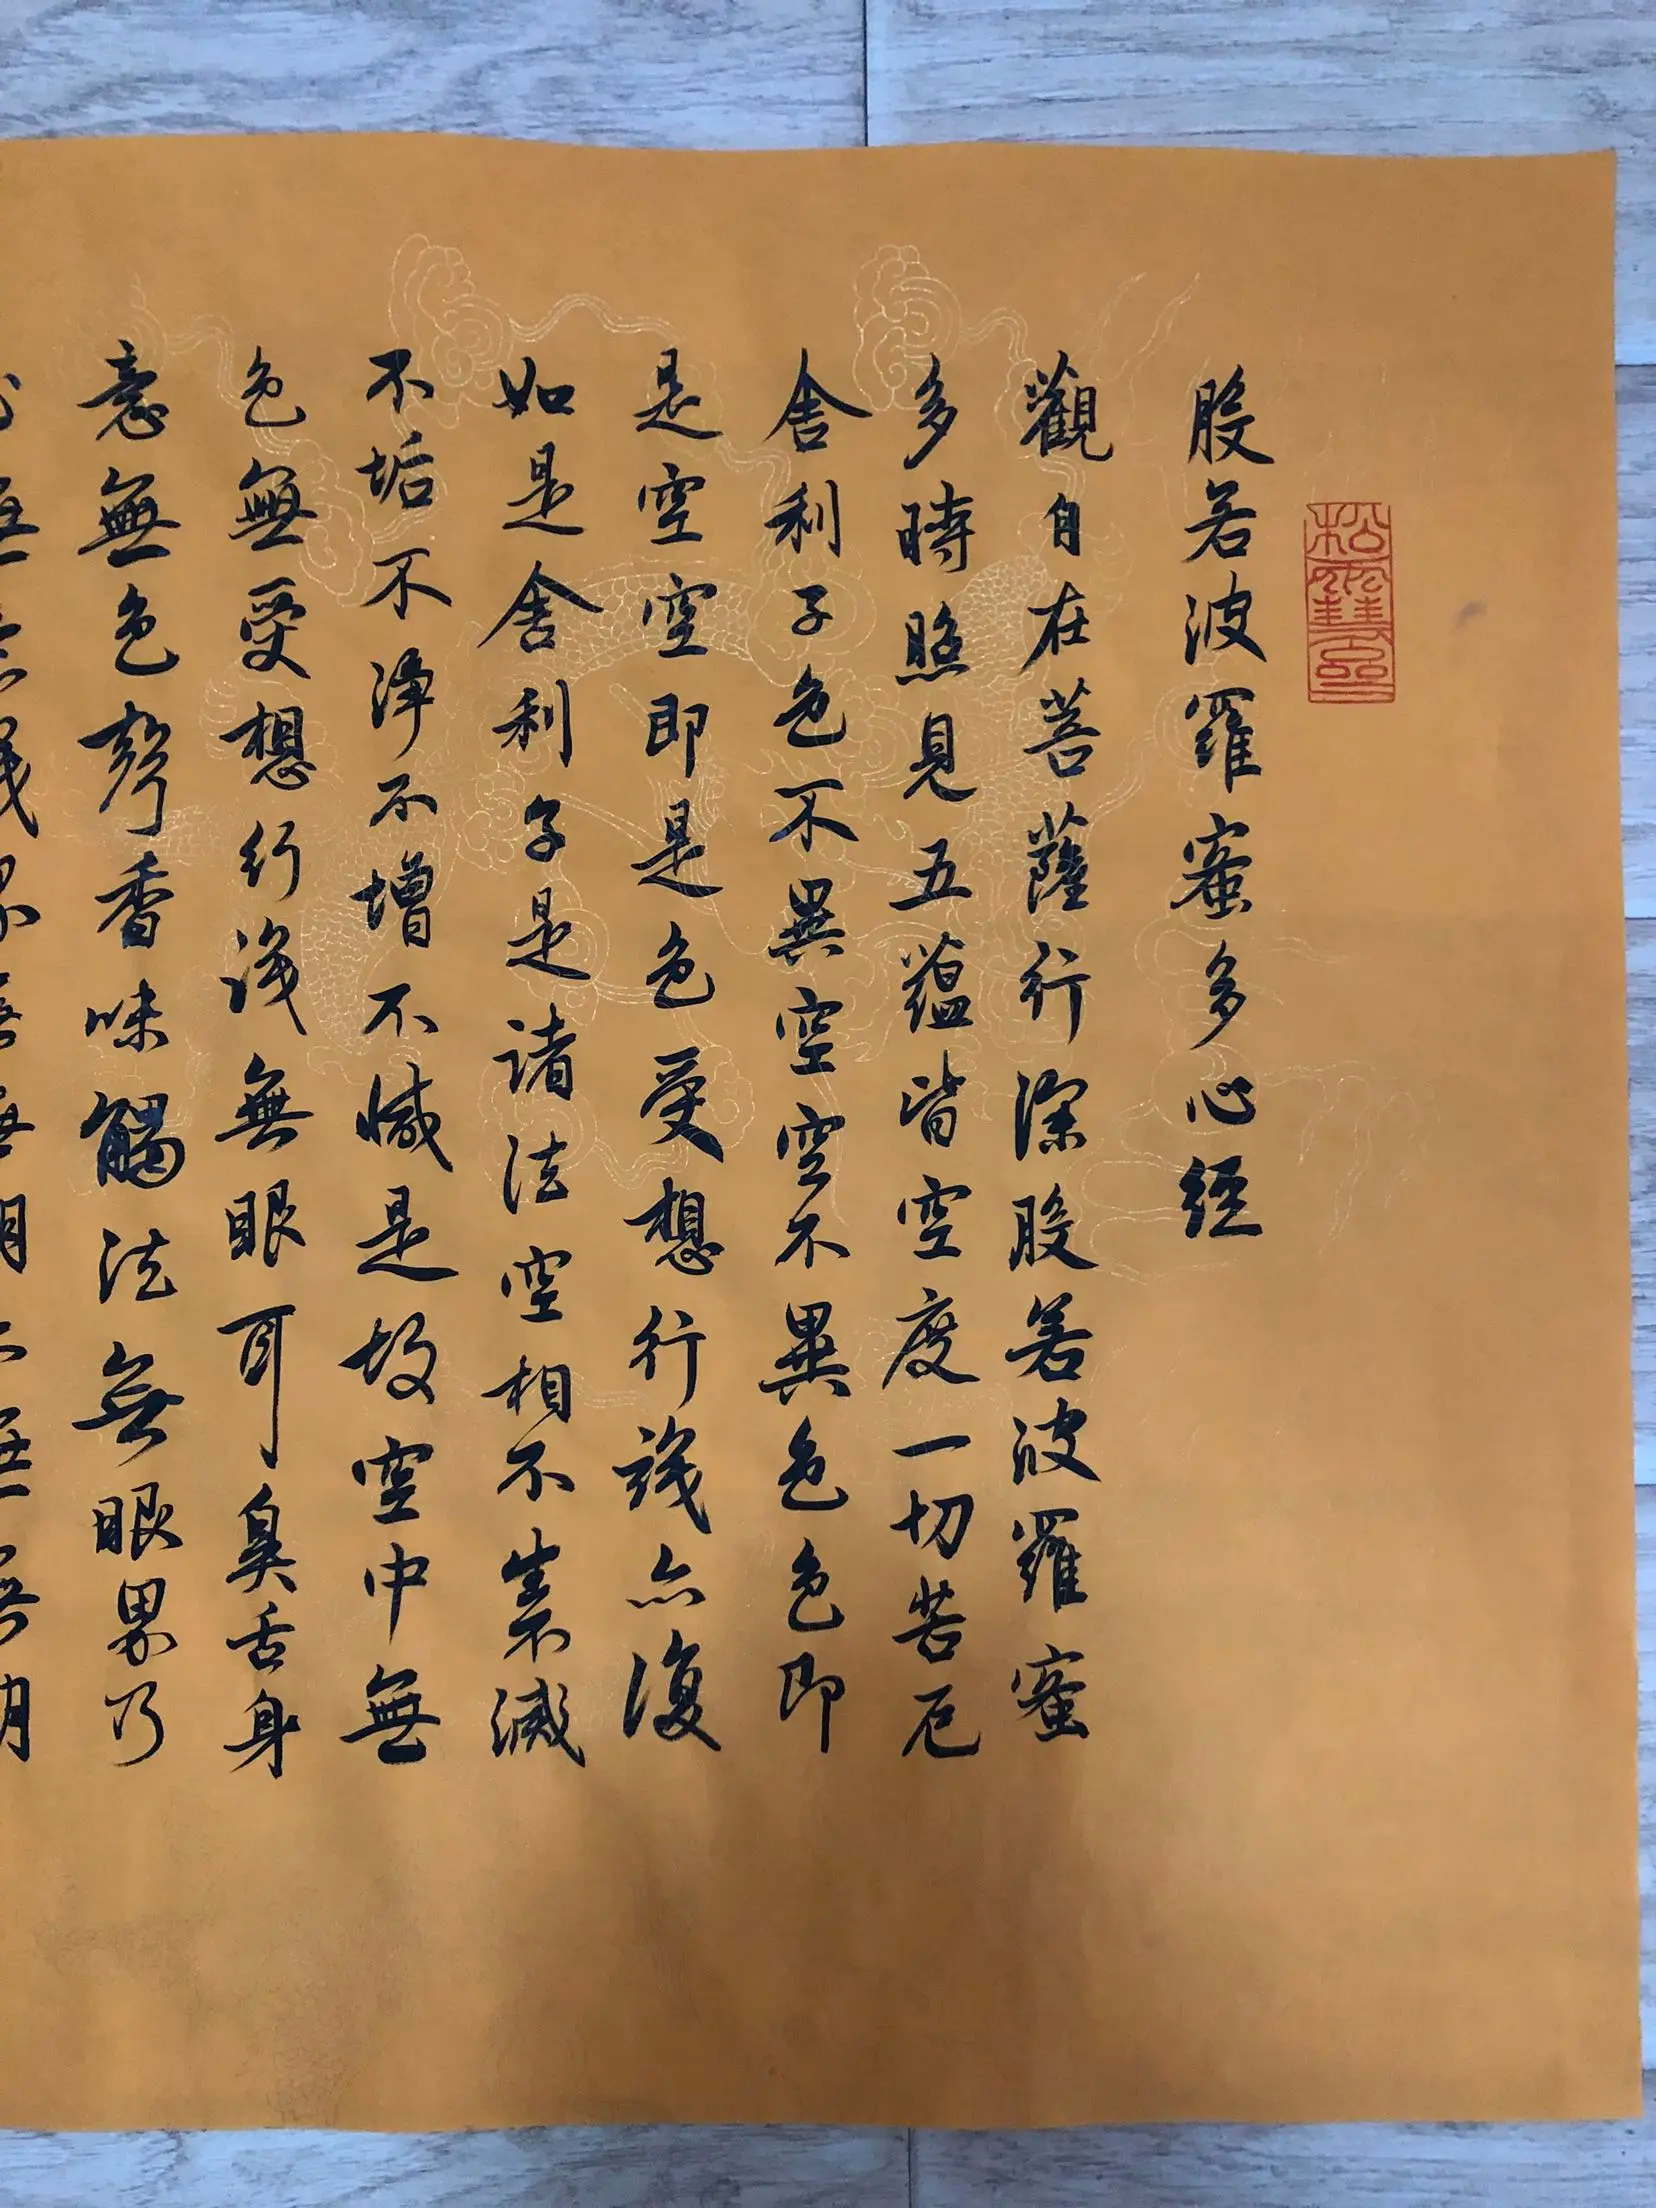 松雪齋
般若波羅蜜多心經
觀自在菩薩行深般若波羅蜜
多時照見五蘊皆空度一切苦厄
舍利子色不異空空不異色色即
是空空即是色受想行識亦復
如是舍利子是諸法空相不生不滅
不垢不淨不增不減是故空中無
色無受想行識無眼耳鼻舌身
意無色聲香味觸法無眼界乃